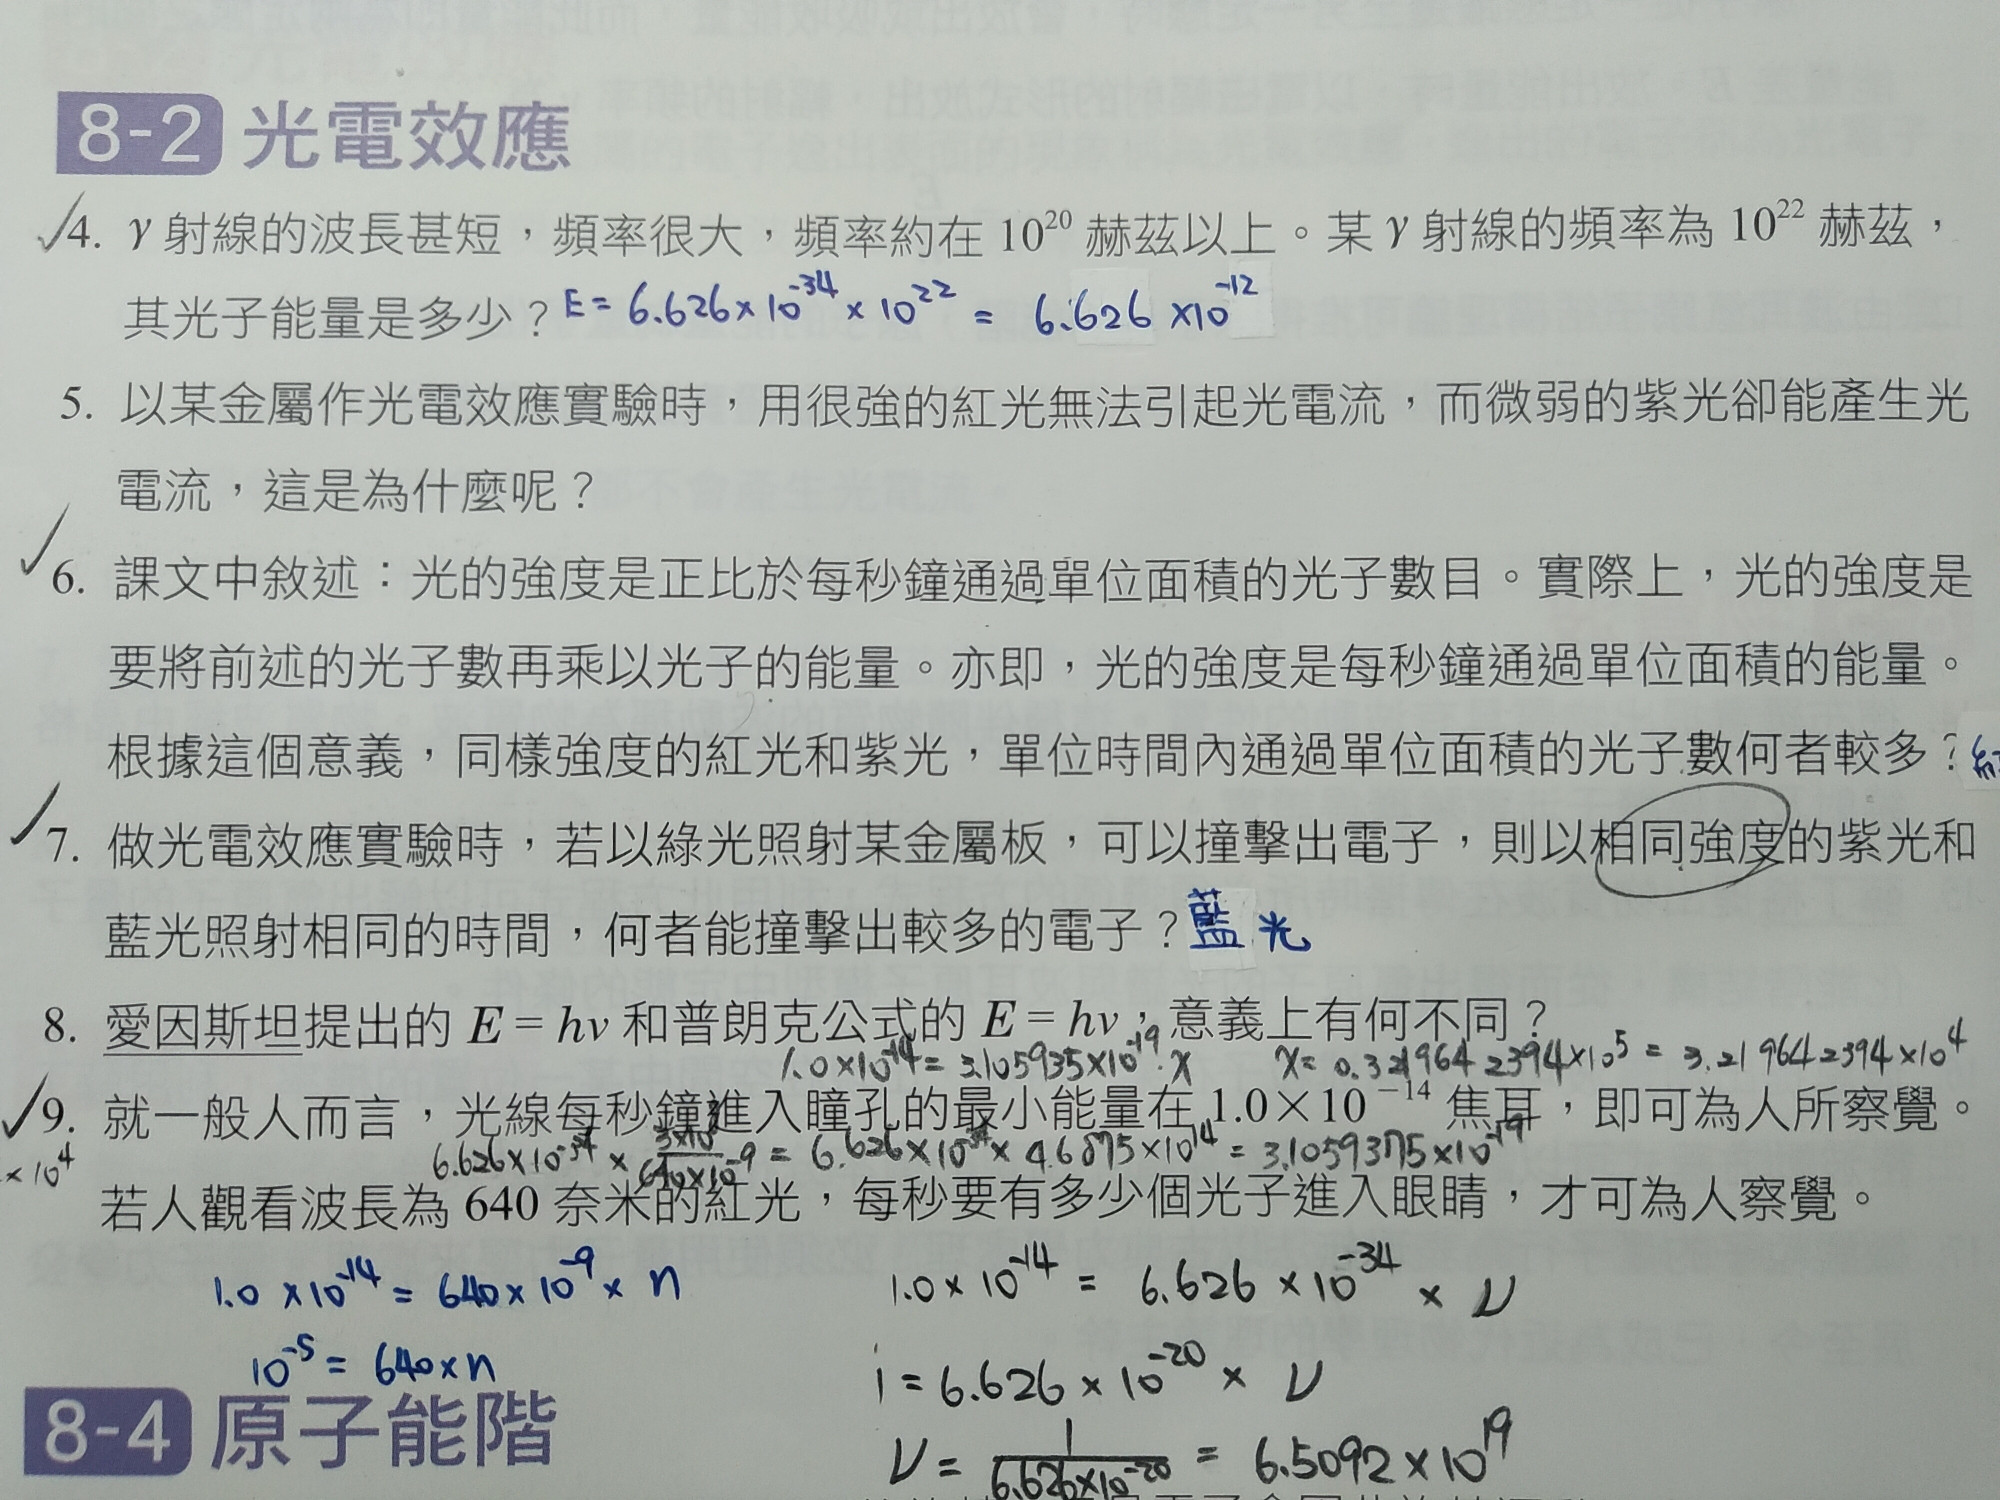 8-2 光電效應
4. γ 射線的波長甚短，頻率很大，頻率約在 10²⁰ 赫茲以上。某 γ 射線的頻率為 10²² 赫茲，
其光子能量是多少？ E = 6.626×10⁻³⁴ × 10²² = 6.626 ×10⁻¹²
5. 以某金屬作光電效應實驗時，用很強的紅光無法引起光電流，而微弱的紫光卻能產生光
電流，這是為什麼呢？
6. 課文中敘述：光的強度是正比於每秒鐘通過單位面積的光子數目。實際上，光的強度是
要將前述的光子數再乘以光子的能量。亦即，光的強度是每秒鐘通過單位面積的能量。
根據這個意義，同樣強度的紅光和紫光，單位時間內通過單位面積的光子數何者較多？
7. 做光電效應實驗時，若以綠光照射某金屬板，可以撞擊出電子，則以相同強度的紫光和
藍光照射相同的時間，何者能撞擊出較多的電子？ 藍光
8. 愛因斯坦提出的 E = hν 和普朗克公式的 E = hν，意義上有何不同？
1.0×10⁻¹⁴ = 3.105935×10⁻¹⁹·x x = 0.3219642394×10⁵ = 3.219642394×10⁴
9. 就一般人而言，光線每秒鐘進入瞳孔的最小能量在 1.0×10⁻¹⁴ 焦耳，即可為人所察覺。
×10⁴ 6.626×10⁻³⁴ × 3×10⁸/640×10⁻⁹ = 6.626×10⁻³⁴ × 4.6875×10¹⁴ = 3.1059375×10⁻¹⁹
若人觀看波長為 640 奈米的紅光，每秒要有多少個光子進入眼睛，才可為人察覺。
1.0 ×10⁻¹⁴ = 640×10⁻⁹ × n 1.0×10⁻¹⁴ = 6.626×10⁻³⁴ × ν
10⁻⁵ = 640×n 1 = 6.626×10⁻²⁰ × ν
8-4 原子能階
ν = 1/6.626×10⁻²⁰ = 6.5092×10¹⁹